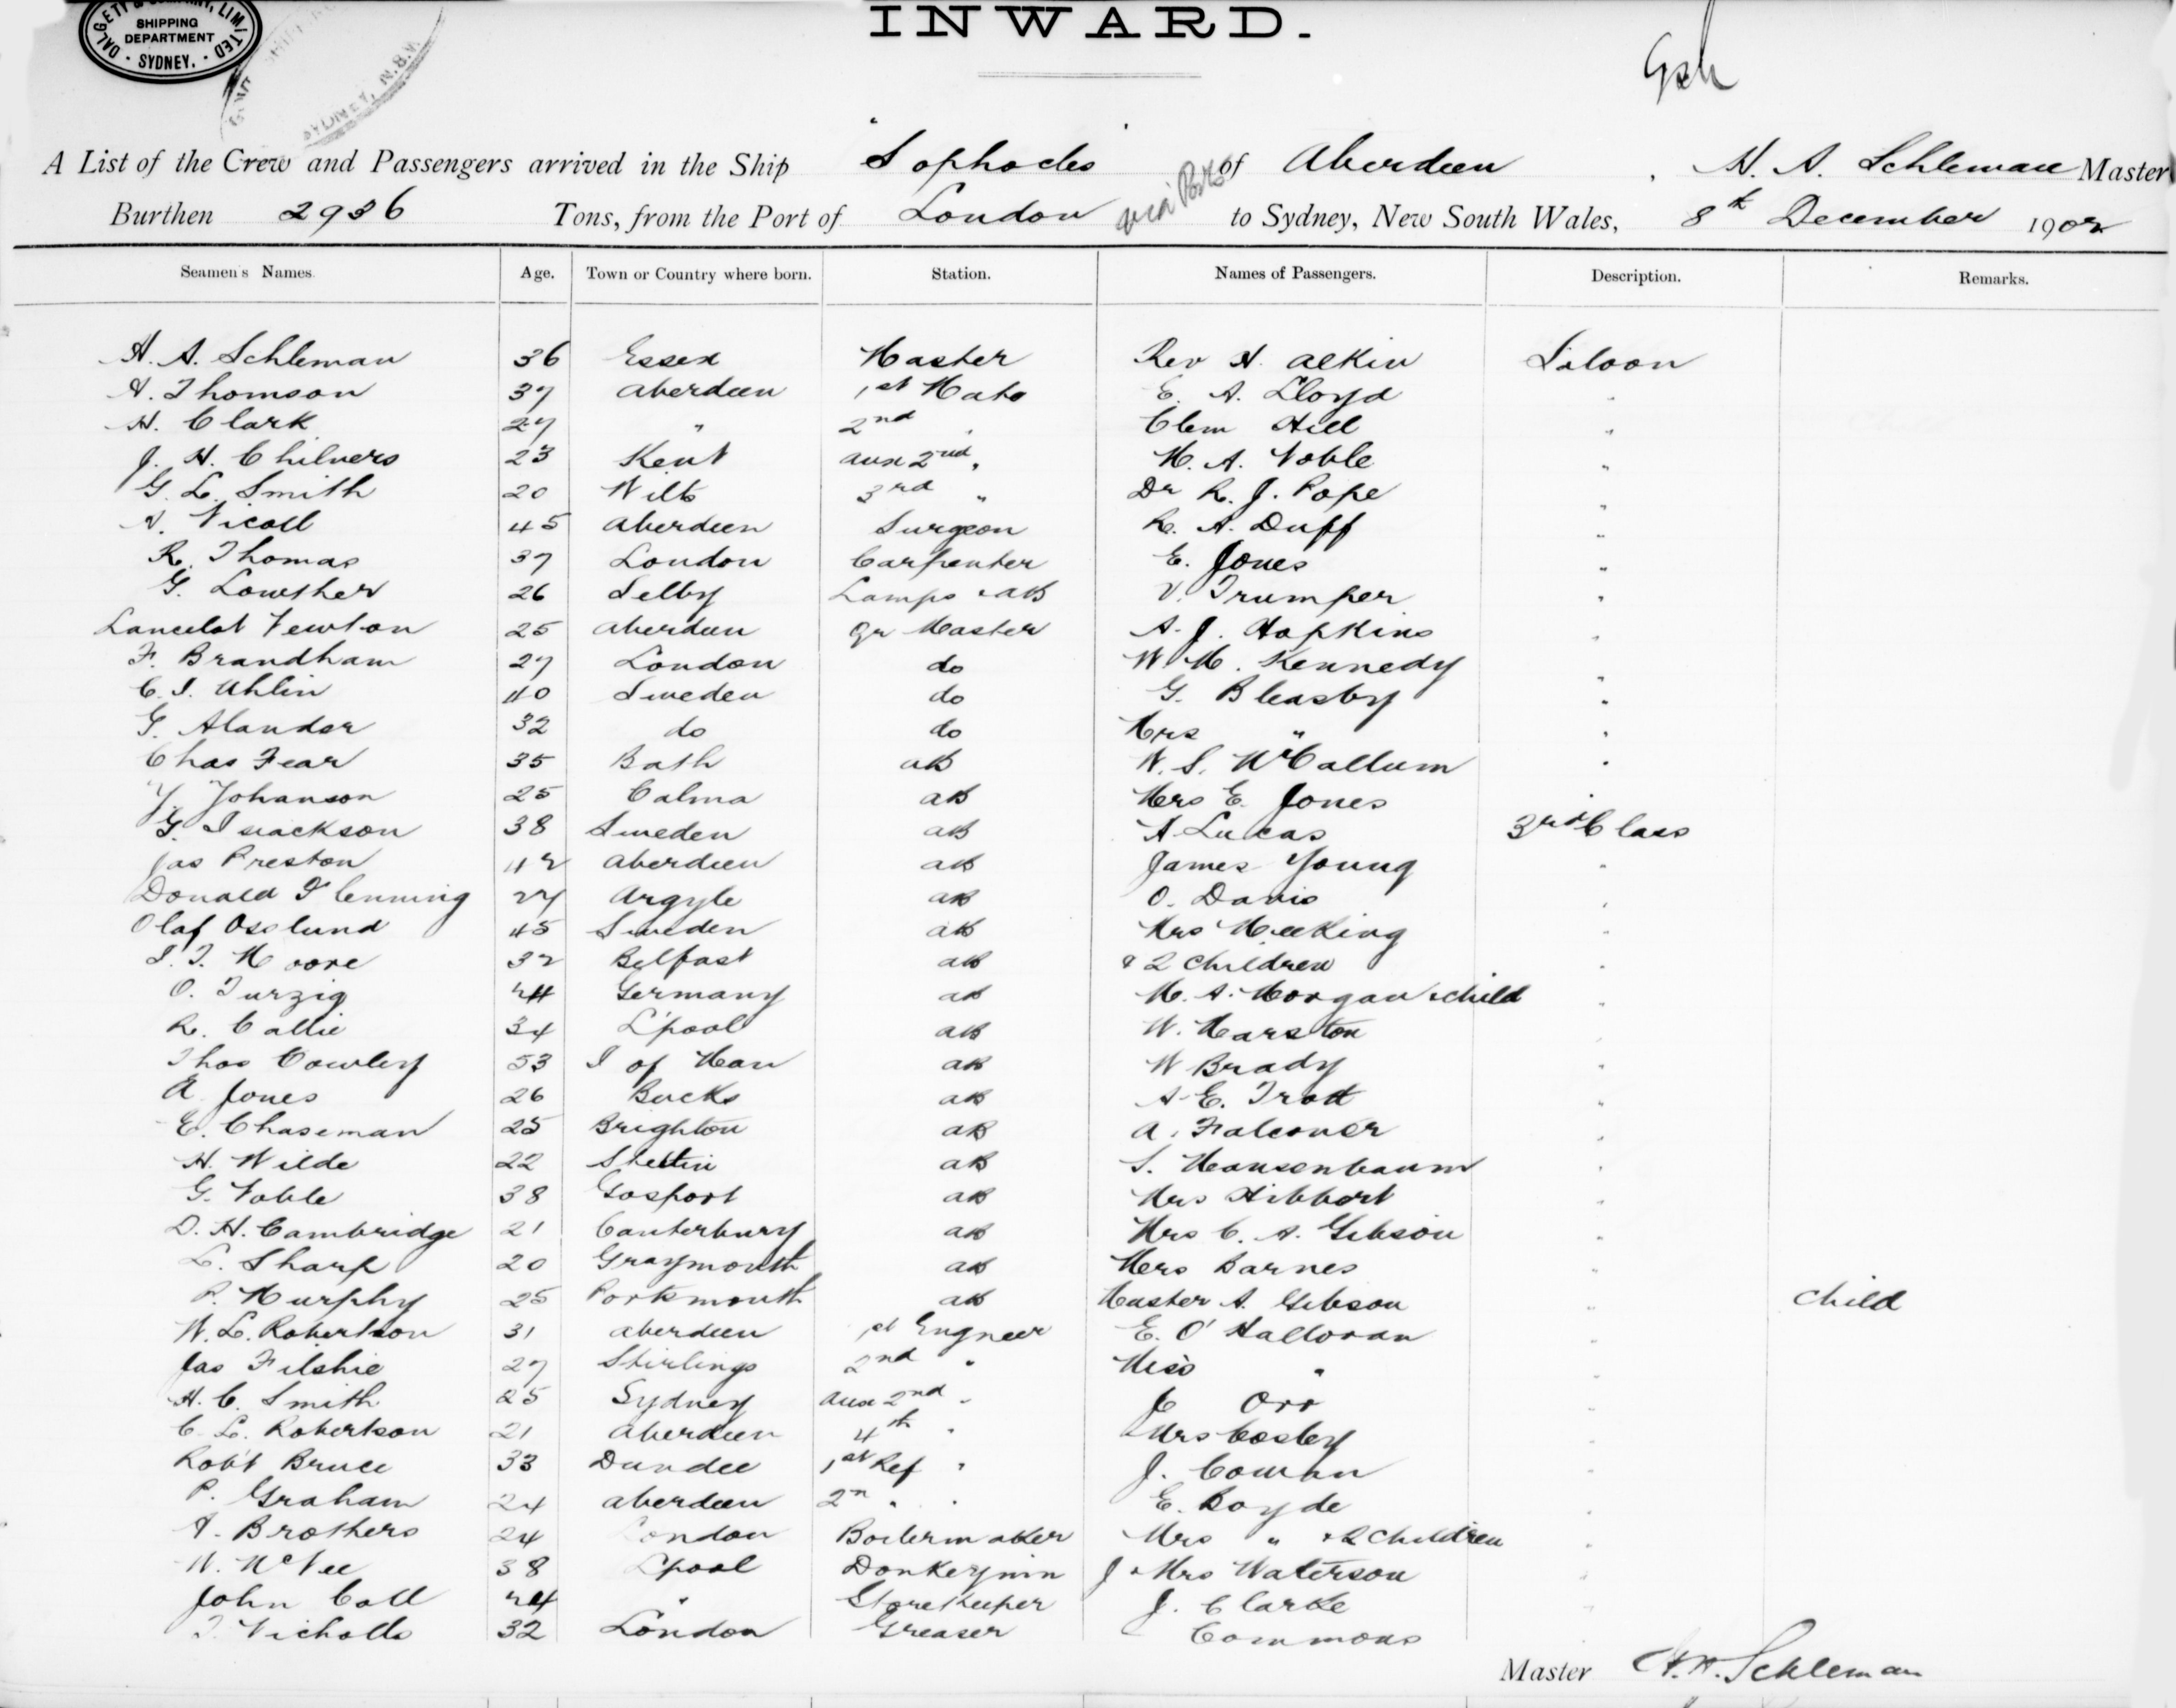 DALGETY & COMPANY, LIMITED
SHIPPING
DEPARTMENT
SYDNEY.
SYDNEY, N.S.W.
INWARD.
A List of the Crew and Passengers arrived in the Ship "Sophocles" of Aberdeen, H. A. Schleman Master
Burthen 2936 Tons, from the Port of London via Ports to Sydney, New South Wales, 8th December 1902
Seamen's Names. Age. Town or Country where born. Station. Names of Passengers. Description. Remarks.
H. A. Schleman 36 Essex Master Rev H. Alkin Saloon
A. Thomson 37 Aberdeen 1st Mate E. A. Lloyd "
H. Clark 27 " 2nd " Clem Hill "
J. H. Chilvers 23 Kent Aux 2nd " M. A. Noble "
G. L. Smith 20 Wilts 3rd " Dr R. J. Pope "
A. Nicoll 45 Aberdeen Surgeon R. A. Duff "
R. Thomas 37 London Carpenter E. Jones "
G. Lowther 26 Selby Lamps & AB V. Trumper "
Lancelot Newton 25 Aberdeen Qr Master A. J. Hopkins "
F. Brandham 27 London do W. M. Kennedy "
C. J. Uhlin 40 Sweden do G. Bleasby "
G. Alander 32 do do Mrs " "
Chas Fear 35 Bath AB W. S. McCallum "
Y. Johanson 25 Calma AB Mrs E. Jones "
G. Isackson 38 Sweden AB A Lucas 3rd Class
Jas Preston 42 Aberdeen AB James Young "
Donald Flemming 27 Argyle AB O. Davis "
Olaf Osolund 45 Sweden AB Mrs MeeKing "
J. T. Moore 32 Belfast AB & 2 children "
O. Turzig 24 Germany AB M. A. Morgan & child "
R. Callie 34 L'pool AB W. Marston "
Thos Cowley 53 I of Man AB W Brady "
A Jones 26 Bucks AB A. E. Trott "
E. Chaseman 25 Brighton AB A. Falconer "
H. Wilde 22 Stettin AB S. Mausenbaum "
G. Noble 38 Gosport AB Mrs Hibbert "
D. H. Cambridge 21 Canterbury AB Mrs C. A. Gibson "
L. Sharp 20 Graymouth AB Mrs Barnes "
P. Murphy 25 Portsmouth AB Master A. Gibson " child
W. L. Robertson 31 Aberdeen 1st Engneer E. O'Halloran "
Jas Filshie 27 Stirlings 2nd " Miss " "
H. C. Smith 25 Sydney Aux 2nd " J Orr "
C. L. Robertson 21 Aberdeen 4th " Mrs Cosley "
Robt Bruce 33 Dundee 1st Ref " J. Cowan "
P. Graham 24 Aberdeen 2n " " E. Boyde "
A. Brothers 24 London Boilermaker Mrs " & 2 Children "
W. McVee 38 L'pool Donkeymn J & Mrs Waterson "
John Coll 24 " StoreKeeper J. Clarke "
T. Nicholls 32 London Greaser Commons
Master H. A. Schleman